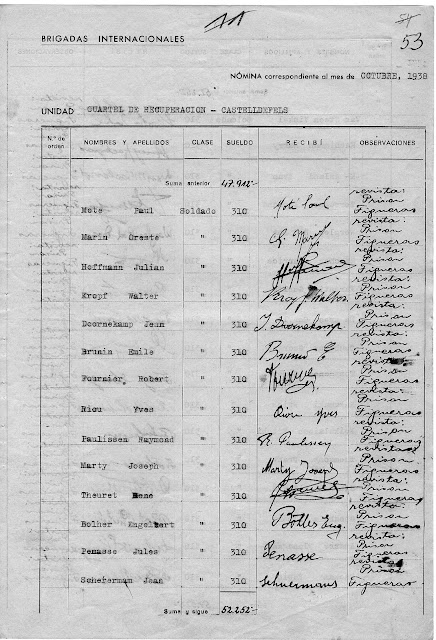 11
54
53
BRIGADAS INTERNACIONALES
NÓMINA correspondiente al mes de OCTUBRE, 1938
UNIDAD CUARTEL DE RECUPERACION - CASTELLDEFELS
N.º de orden NOMBRES Y APELLIDOS CLASE SUELDO RECIBÍ OBSERVACIONES
Suma anterior 47.912'-
revista:
Prison
Mote Paul Soldado 310 Mote Paul Figueras
revista:
Prison
Marin Oreste " 310 Figueras
revista:
Prison
Hoffmann Julian " 310 Figueras
revista:
Prison
Kropf Walter " 310 Kropf Walter Figueras
revista:
Prison
Doornekamp Jean " 310 J. Doornekamp Figueras
revista:
Prison
Brunin Emile " 310 Brunin E Figueras
revista:
Prison
Fournier Robert " 310 Figueras
revista:
Prison
Riou Yves " 310 Riou Yves Figueras
revista:
Prison
Paulissen Raymond " 310 R. Paulissen Figueras
revista:
Prison
Marty Joseph " 310 Marty Joseph Figueras
revista:
Prison
Theuret René " 310 Figueras
revista
Prison
Bolher Engelbert " 310 Figueras
revista:
Prison
Penasse Jules " 310 Penasse Figueras
revista
Prison
Scheferman Jean " 310 Schuermans Figueras
Suma y sigue 52.252'-